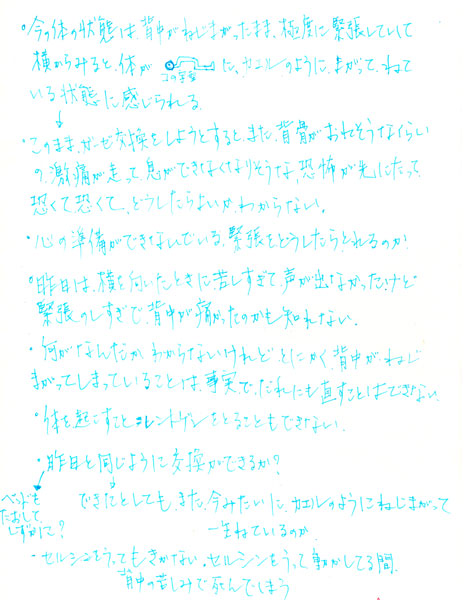 ・今の体の状態は背中がねじまがったまま、極度に緊張していて
横からみると、体が に、カエルのように、まがって、ねて
コの字型
いる状態に感じられる
・このまま、ガーゼ交換をしようとすると、また、背骨がおれそうなくらい
の、激痛が走って息ができなくなりそうな、恐怖が先にたって
恐くて恐くて、どうしたらよいかわからない。
・心の準備ができないでいる、緊張をどうしたらとれるのか
・昨日は、横を向いたときに苦しすぎて、声が出なかったけど
緊張のしすぎで、背中が痛かったのかも知れない。
・何がなんだか、わからないけれど、とにかく、背中が、ねじ
まがってしまっていることは、事実で、だれにも直すことはできない
・体を起こすことも、レントゲンをとることもできない。
・昨日と同じように交換ができるか?
ベッドも
たおして、
しずかに?
できたとしても、また、今みたいに、カエルのようにねじまがって
一生ねているのか
-セルシンをうってもきかない。セルシンをうって動かしてる間、
背中の苦しみで死んでしまう